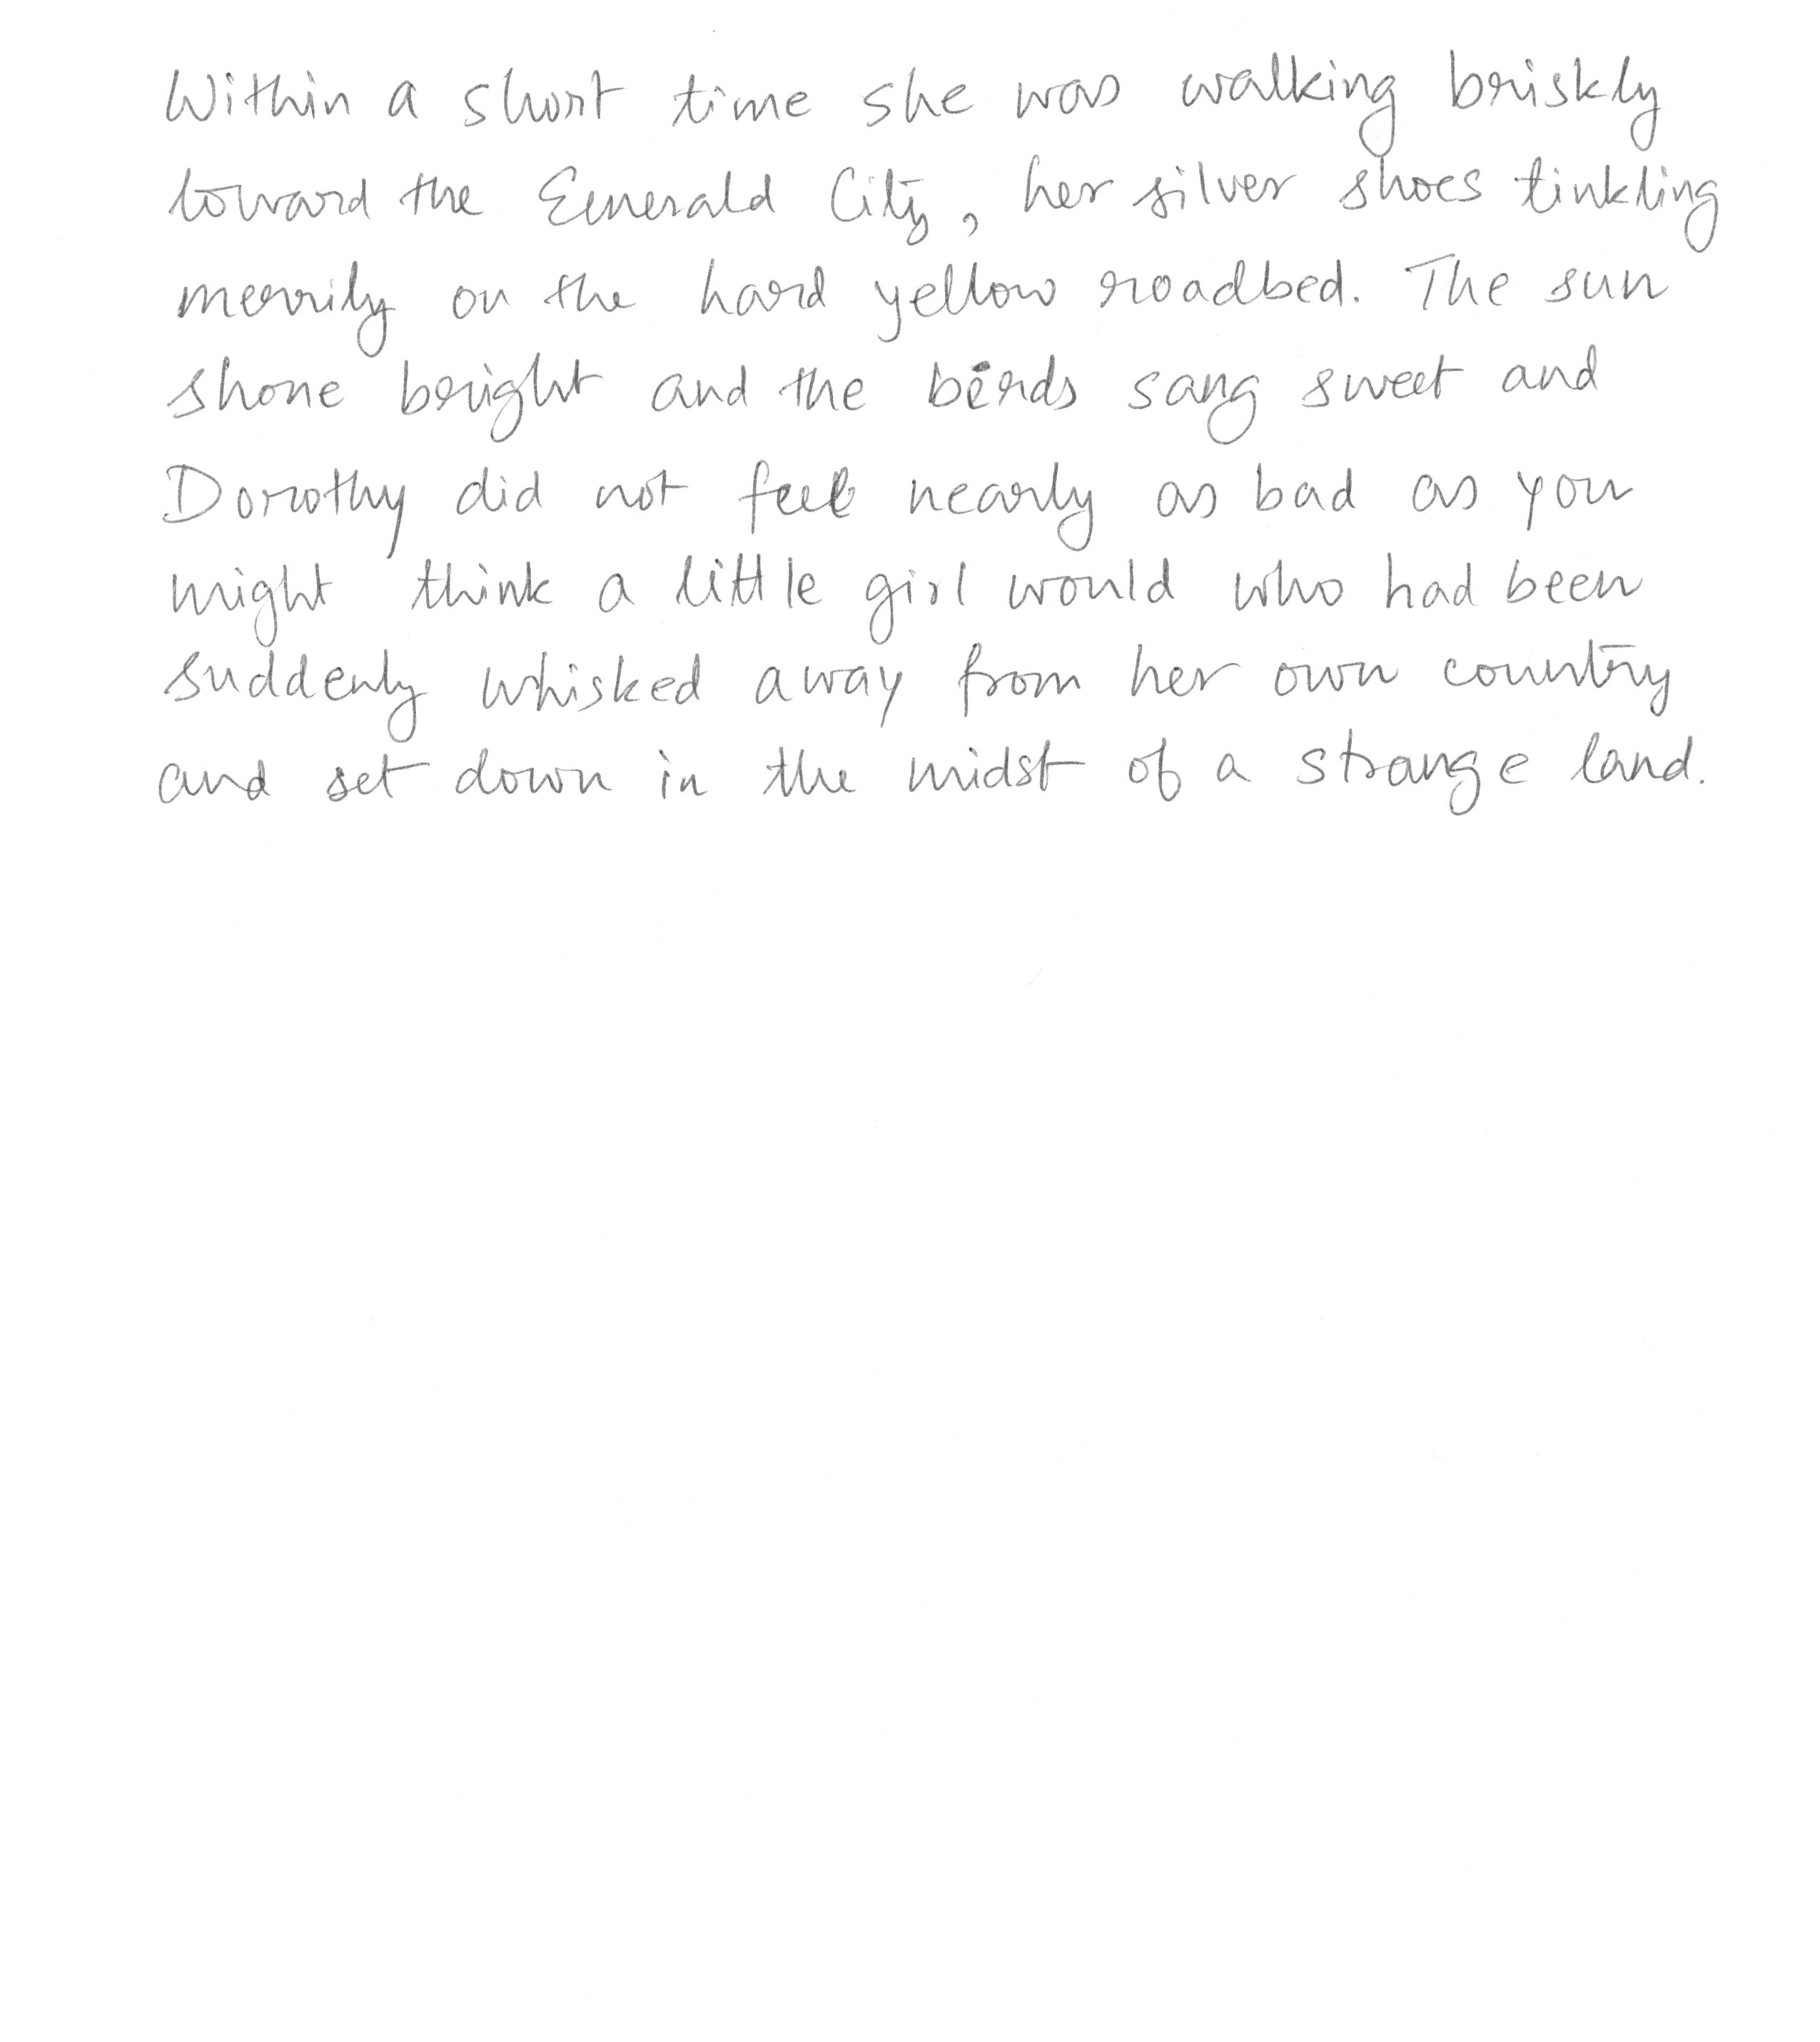 Within a short time she was walking briskly
toward the Emerald City, her silver shoes tinkling
merrily on the hard yellow roadbed. The sun
shone bright and the birds sang sweet and
Dorothy did not feel nearly as bad as you
might think a little girl would who had been
suddenly whisked away from her own country
and set down in the midst of a strange land.